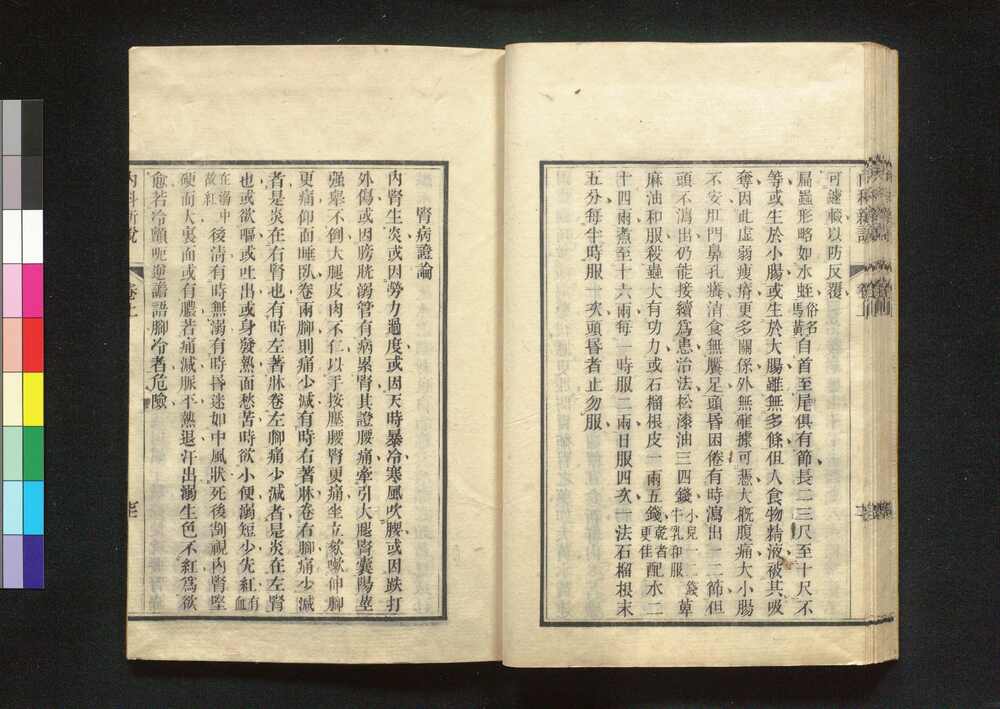 可謹輟以防反覆
扁蟲形略如水蛭俗名馬黃自首至尾俱有節長二三尺至十尺不
等或生於小腸或生於大腸雖無多條但人食物精液被其吸
奪因此虛弱痩瘠更多關係外無確據可憑大槪腹痛大小腸
不安肛門鼻孔癢消食無饜足頭昏困倦有時瀉出一二節但
頭不瀉出仍能接續爲患治法松漆油三四錢小兒一二錢牛乳和服草
麻油和服殺蟲大有功力或石榴根皮一兩五錢乾者更佳配水二
十四兩煮至十六兩每一時服二兩日服四次一法石榴根末
五分每半時服一次頭昏者止勿服
腎病證論
內腎生炎或因勞力過度或因天時暴冷寒風吹腰或因跌打
外傷或因膀胱溺管有病累腎其證腰痛牽引大腿腎囊陽莖
強睾不倒大腿皮肉不仁以手按壓腰腎更痛坐立欬嗽伸腳
更痛仰面睡臥卷兩腳則痛少減有時右著牀卷右腳痛少減
者是炎在右腎也有時左著牀卷左腳痛少減者是炎在左腎
也或欲嘔或吐出或身發熱面愁苦時欲小便溺短少先紅有血
在溺中故紅後淸有時無溺有時昏迷如中風狀死後割視內腎堅
硬而大裏面或有膿若痛減脈平熱退汗出溺生色不紅爲欲
愈若冷顫呃逆譫語腳冷者危險
內科新說
卷上